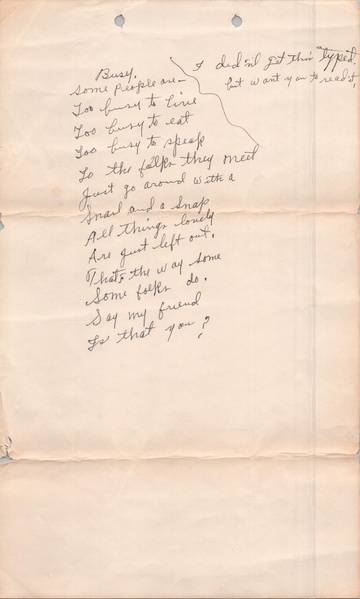 I didn't get this typed.
but want you to read it,
Busy.
Some People are—
Too busy to live
Too busy to eat
Too busy to speak
To the folks they meet
Just go around with a
Snarl and a Snap
All things lovely
Are just left out.
Thats the way some
Some folks do.
Say my friend
Is that you?